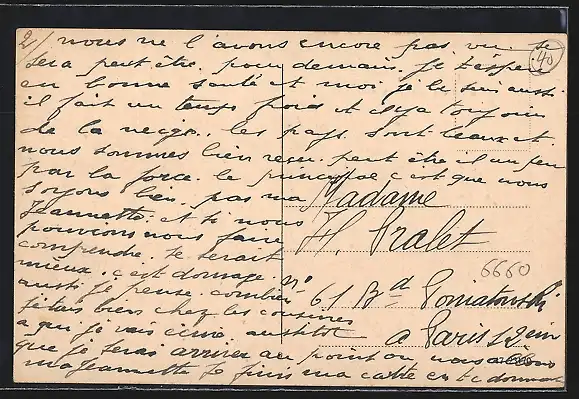 2/ nous ne l'avons encore pas vu. se
sera peut être. pour demain. Je t'espère
en bonne santé et moi je le suis aussi.
il fait un temps froid et il y a toujours
de la neige. les pays sont beaux et
nous sommes bien reçu. peut être il un peu
par la force. le principal c'est que nous
soyons bien. pas ma
Jeannette. et si nous
pouvions nous faire
comprendre. se serait
mieux. c'est domage.
aussi je pense. combien
j'étais bien chez les cousines
a qui je vais écrire aussitôt
que je serai arriver au point ou nous
ma Jeannette Je finis ma carte en te donnant
Madame
H. Pralet
n° 61 Bd Poniatowski
a Paris 12 ein
40
6660